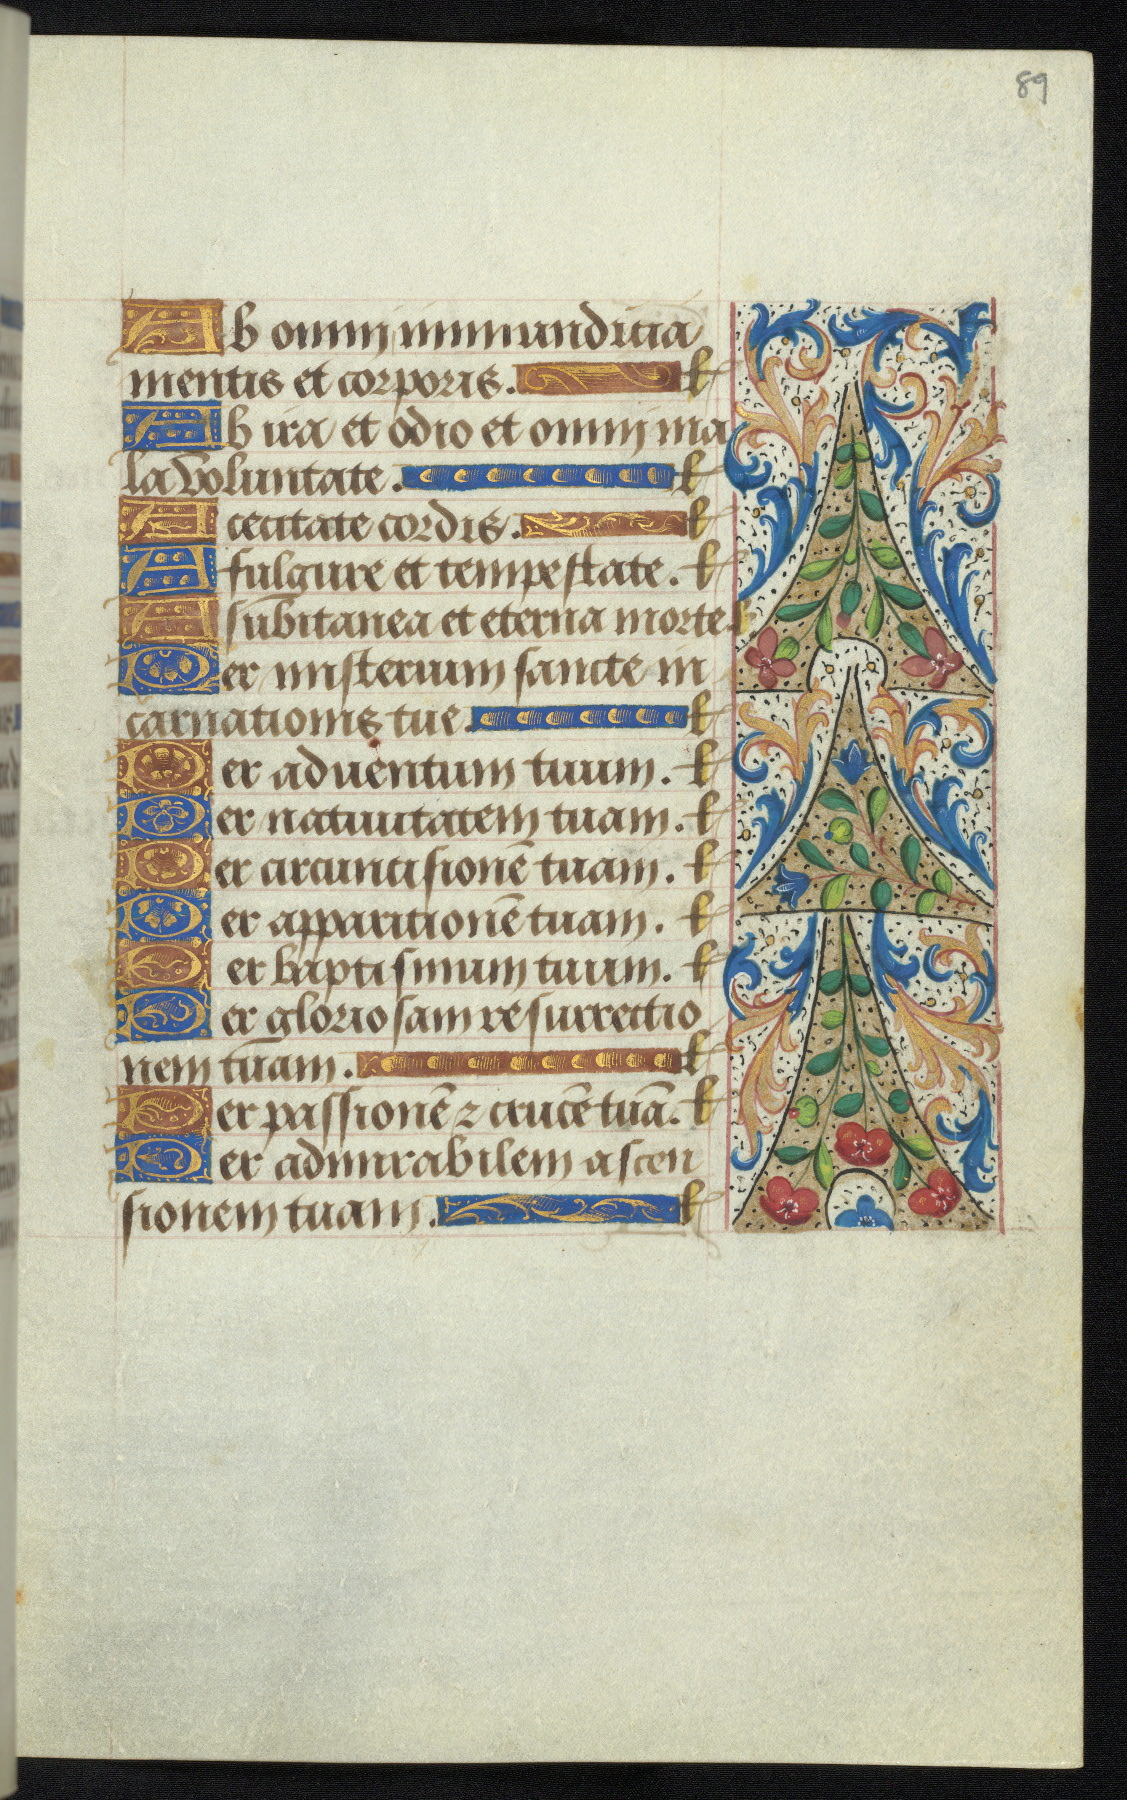 89
Ab omni immundicia
mentis et corporis. l
Ab ira et odio et omni ma
la voluntate. l
A cecitate cordis. l
A fulgure et tempestate. l
A subitanea et eterna morte. l
Per misterium sancte in
carnationis tue. l
Per aduentum tuum. l
Per natiuitatem tuam. l
Per circuncisionẽ tuam. l
Per apparitionẽ tuam. l
Per baptismum tuum. l
Per gloriosam resurrectio
nem tuam. l
Per passionẽ ⁊ crucẽ tuã. l
Per admirabilem ascen
sionem tuam. l